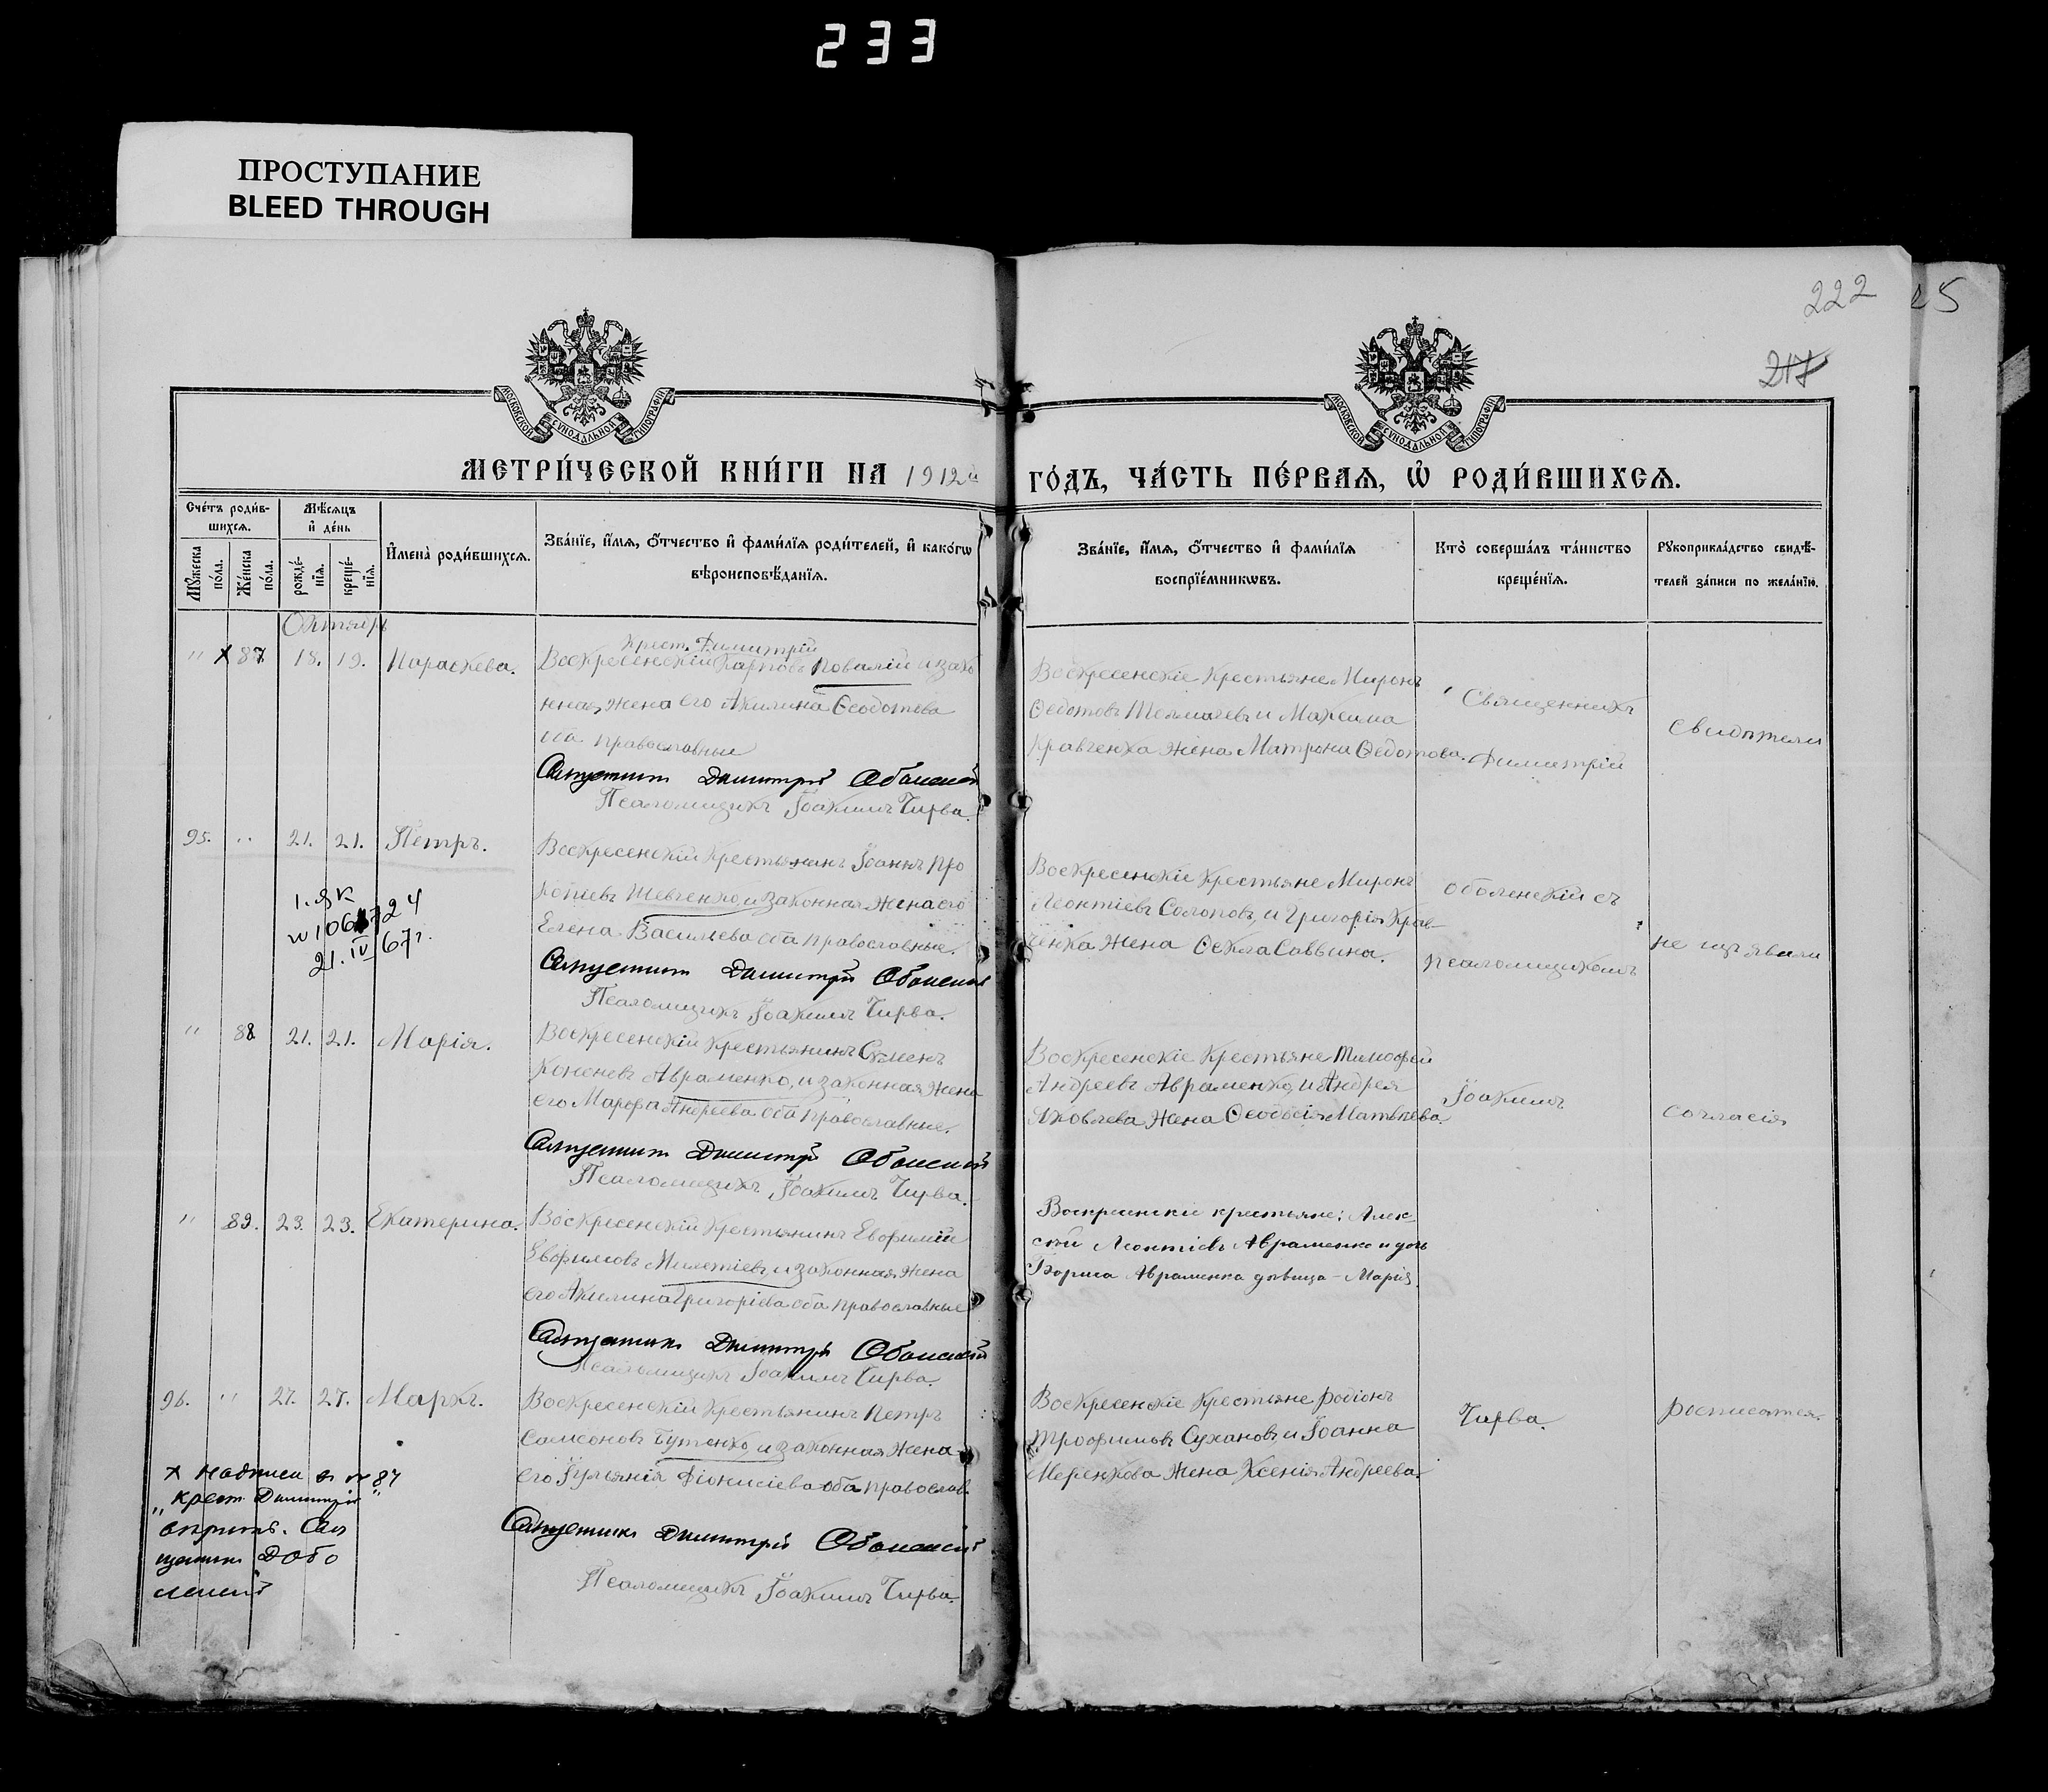 233
ПРОСТУПАНИЕ
BLEED THROUGH
222
25
217
МОСКОВСКОЙ СѴНОДАЛЬНОЙ ТИПОГРАФІИ
МОСКОВСКОЙ СѴНОДАЛЬНОЙ ТИПОГРАФІИ
МЕТРИ́ЧЕСКОЙ КНИ́ГИ НА 1912й
ГО́ДЪ, ЧА́СТЬ ПЕ́РВАѦ, Ѡ҆ РОДИ́ВШИХСѦ.
Сче́тъ роди́в-
шихсѧ.
Мꙋ́жеска по́ла.
Же́нска по́ла.
Мѣ́сѧцъ
и҆ де́нь
рожде́-
нїѧ.
креще́-
нїѧ.
И҆мена̀ роди́вшихсѧ.
Зва́нїе, и҆́мѧ, ѻ҆́тчество и҆ фами́лїѧ роди́телей, и҆ како́гѡ
вѣроисповѣ́данїѧ.
Зва́нїе, и҆́мѧ, ѻ҆́тчество и҆ фами́лїѧ
воспрїе́мникѡвъ.
Кто̀ соверша́лъ та́инство
креще́нїѧ.
Рꙋкоприкла́дство свидѣ́-
телей за́писи по жела́нїю.
Октябрь
" х 87 18. 19. Параскева.
Крест. Димитрій
Воскресенскій Карповъ Повалій и зако
нная жена его Акилина Ѳеодотова
оба православные
Священникъ Димитрій Оболенскій
Псаломщикъ Іоакимъ Чирва.
Воскресенскіе Крестьяне Миронъ
Ѳедотовъ Толмачевъ и Максима
Кравченка жена Матрона Ѳедотова.
Священникъ
Димитрій
Свидѣтели
95. " 21. 21. Петръ.
1. ЯК
№ 1061724
21. IV 67г.
Воскресенскій Крестьянинъ Іоаннъ Про
копіевъ Шевченко, и законная жена его
Елена Васильева оба православные.
Священникъ Димитрій Оболенскій
Псаломщикъ Іоакимъ Чирва.
Воскресенскіе Крестьяне Миронъ
Леонтіевъ Солоповъ, и Григорія Крав-
ченка жена Ѳекла Саввина.
Оболенскій съ
псаломщикомъ
не изъявили
" 88 21. 21. Марія.
Воскресенскій Крестьянинъ Сѵмеонъ
Кононовъ Авраменко, и законная жена
его Марфа Андреева оба православные.
Священникъ Димитрій Оболенскій
Псаломщикъ Іоакимъ Чирва.
Воскресенскіе Крестьяне Тимофей
Андреевъ Авраменко, и Андрея
Яковлева жена Ѳеодосія Матвѣева.
Іоакимъ
согласія
" 89. 23. 23. Екатерина.
Воскресенскій Крестьянинъ Евфимій
Евфимовъ Милетіевъ, и законная жена
его Акилина Григоріева оба православные
Священникъ Димитрій Оболенскій
Псаломщикъ Іоакимъ Чирва.
Воскресенскіе крестьяне: Алек-
сѣй Леонтіевъ Авраменко и дочь
Бориса Авраменка дѣвица - Марія.
96. " 27. 27. Маркъ.
Воскресенскій Крестьянинъ Петръ
Самсоновъ Бутенко, и законная жена
его Іуліянія Діонисіева оба православ.
Священникъ Димитрій Оболенскій
Псаломщикъ Іоакимъ Чирва.
Воскресенскіе Крестьяне Родіонъ
Трофимовъ Сухановъ, и Іоанна
Меренкова жена Ксенія Андреева.
Чирва.
росписаться.
х надписи в № 87
"крест. Димитрій"
вѣрить. Свя
щенникъ Д Обо
ленскій